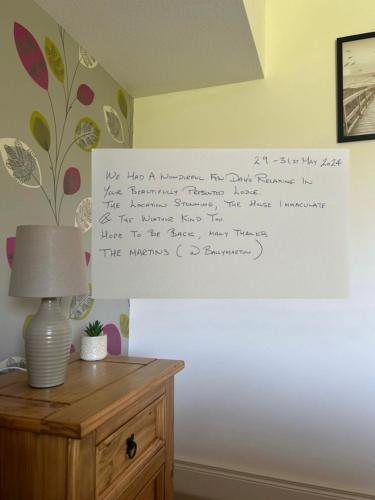 29 - 31st May 2024
We Had A Wonderful Few Day's Relaxing In
Your Beautifully Presented Lodge.
The Location Stunning, The House Immaculate
& The Weather Kind Too
Hope To Be Back, Many Thanks
The Martins (IN Ballymartin)